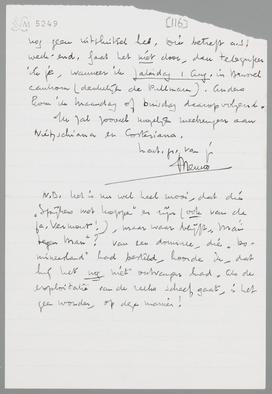 M 5249
[116]
nog geen uitsluitsel heb, wie betreft aub
week-end. Gaat het niet door, dan telegrafeer
ik je, wanneer ik zaterdag 1 Aug. in Brussel
aankom (dadelijk de Pullman). Anders
kom ik maandag of dinsdag daaropvolgend.
Ik zal zooveel mogelijk meebrengen aan
Nietzschiana en Corteziana.
hart. gr. van je
Menno
N.B. het is nu wel heel mooi, dat die
en zijn (ook van de
), maar waar blijft "Man
tegen Man"? Van een dominee, die
had besteld, hoorde ik, dat
hij het nog niet ontvangen had. Als de
exploitatie van de reeks scheef gaat, is het
geen wonder, op deze manier!